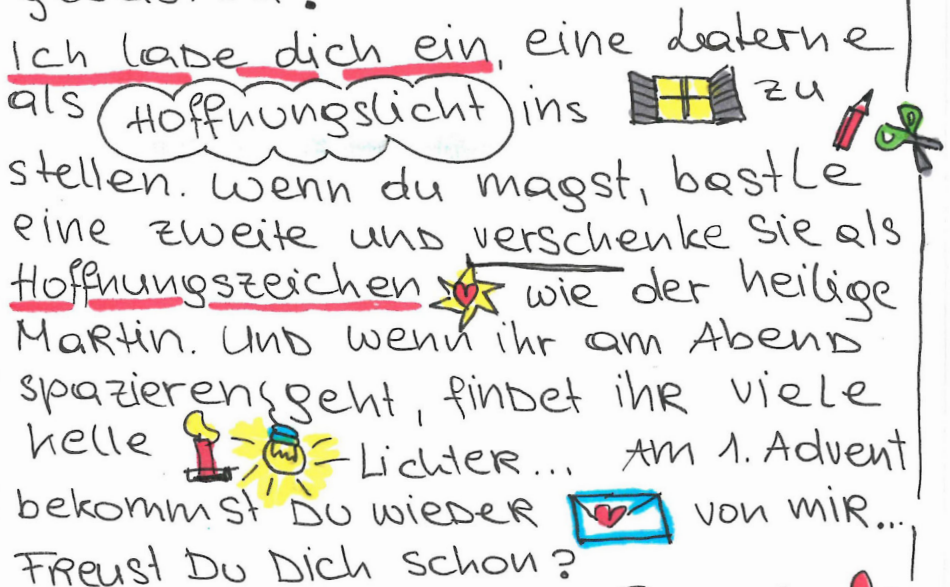 Ich lade dich ein, eine Laterne
als Hoffnungslicht ins zu
stellen. Wenn du magst, bastle
eine zweite und verschenke sie als
Hoffnungszeichen wie der heilige
Martin. Und wenn ihr am Abend
spazieren geht, findet ihr viele
helle Lichter... Am 1. Advent
bekommst Du wieder von mir...
Freust Du Dich schon?